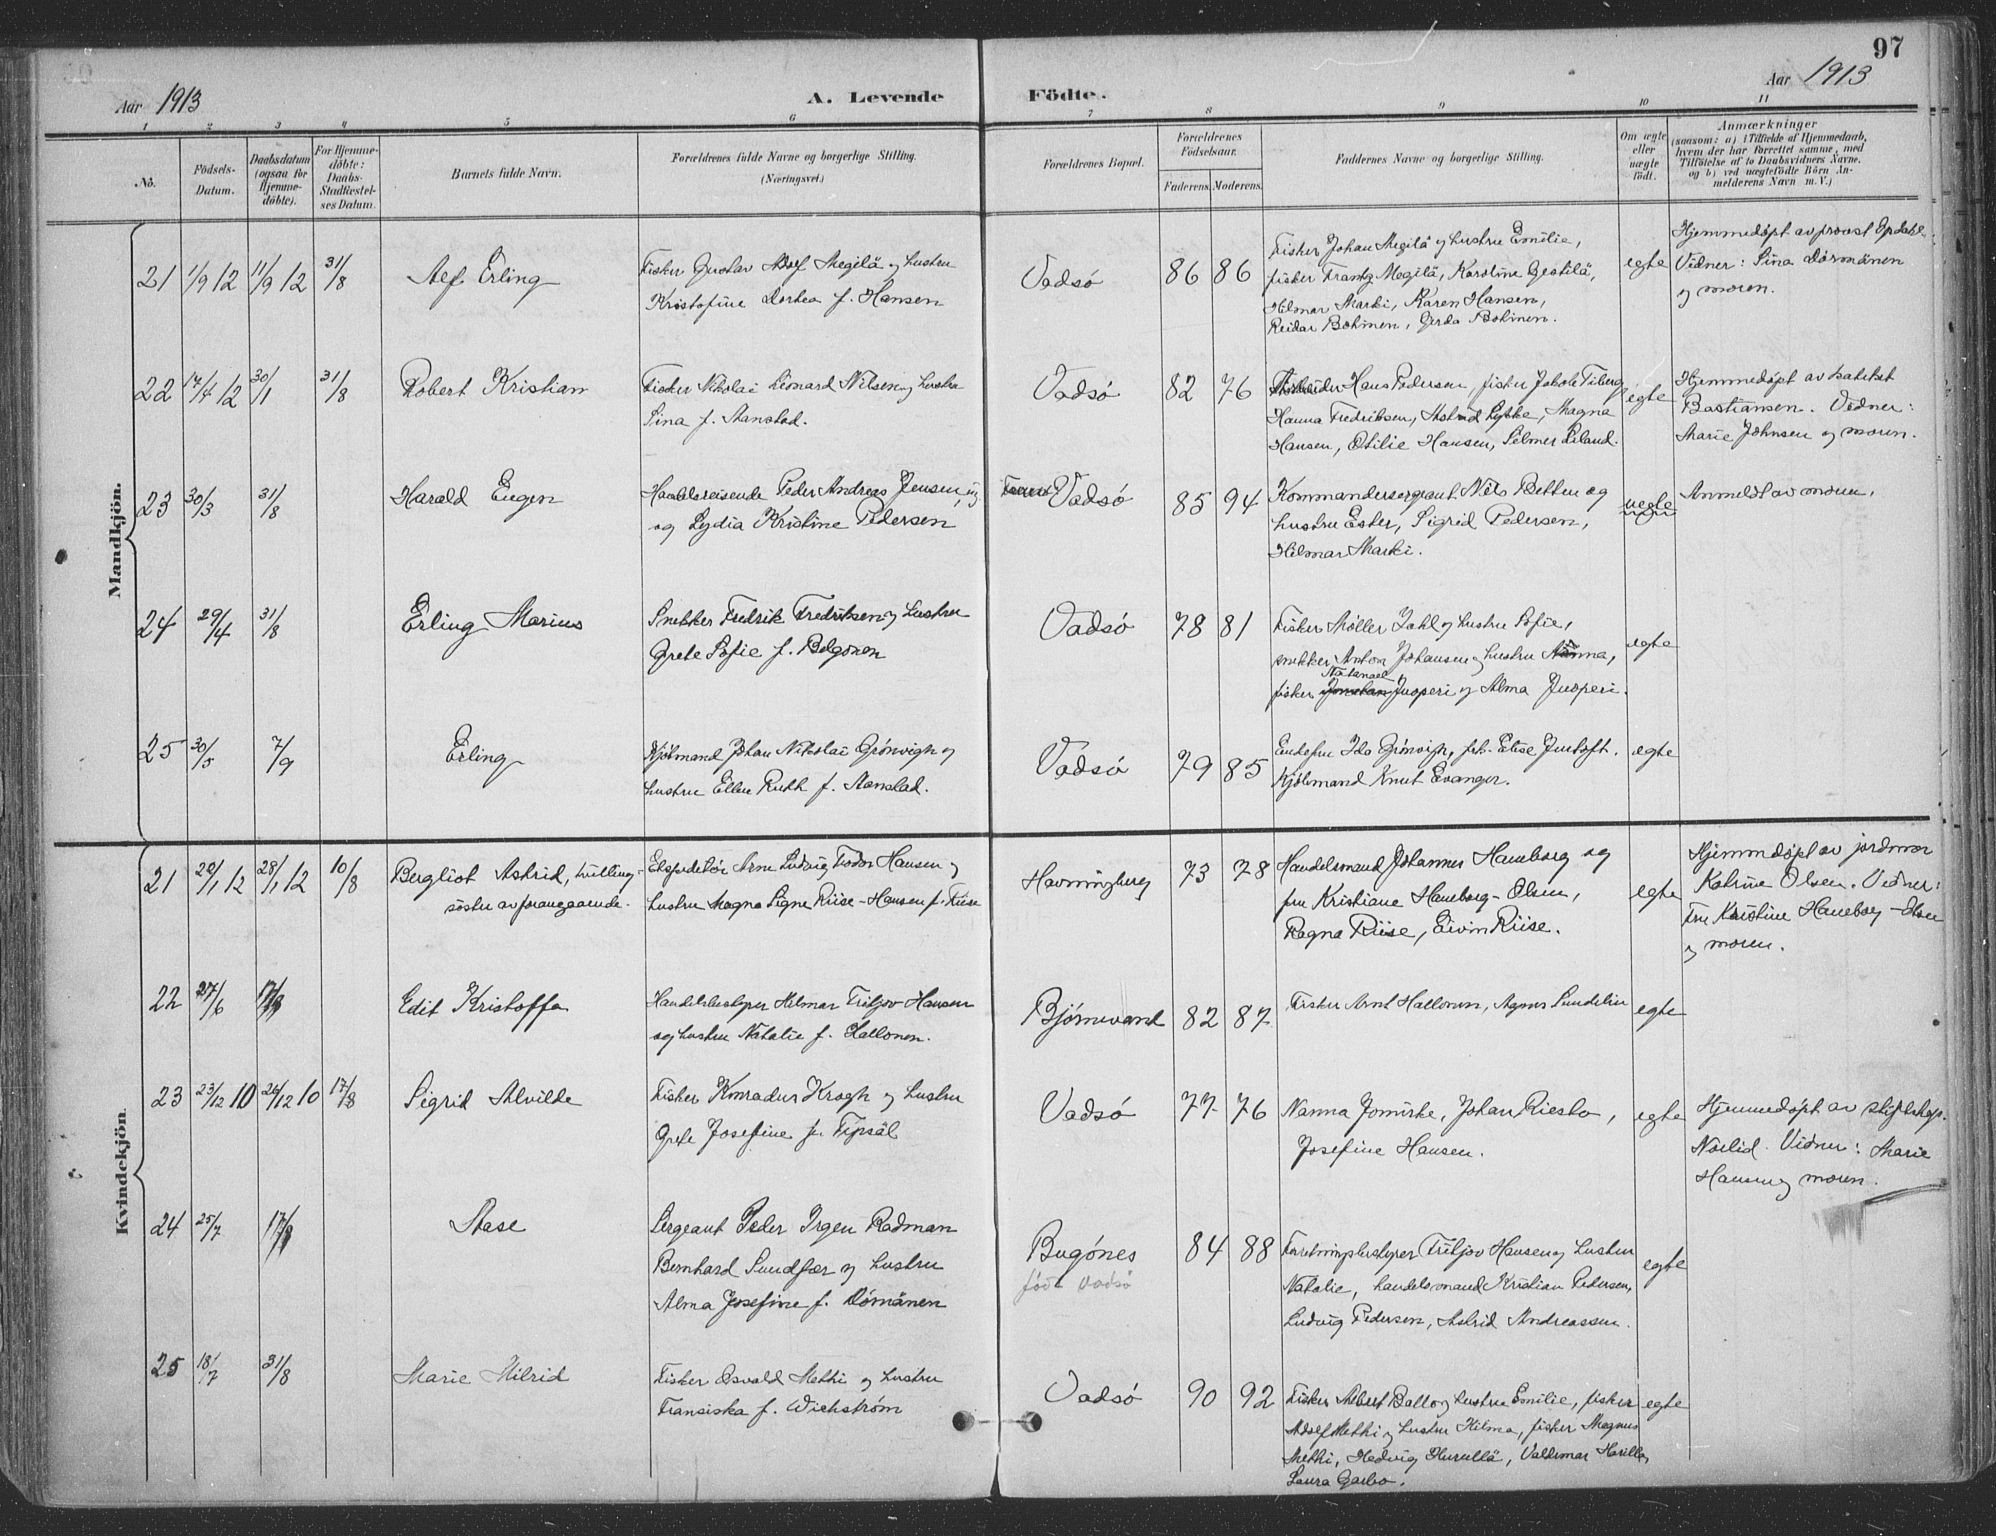 97
Aar 1913
A. Levende Födte.
Aar 1913
1 2 3 4 5 6 7 8 9 10 11
No.
Födsels-Datum.
Daabsdatum (ogsaa for Hjemme-döbte).
For Hjemme-döbte: Daabs-Stadfæstel-ses Datum.
Barnets fulde Navn.
Forældrenes fulde Navne og borgerlige Stilling.
(Næringsvei.)
Forældrenes Bopæl.
Forældrenes Födselsaar.
Faderens. Moderens.
Faddernes Navne og borgerlige Stilling.
Om ægte eller uægte födt.
Anmærkninger
(saasom: a) i Tilfælde af Hjemmedaab, hvem der har forrettet samme, med Tilföielse af to Daabsvidners Navne, og b) ved uægtefödte Börn An-melderens Navn m. V.)
Mandkjön.
21 1/9 12 11/9 12 31/8 Alf Erling
Fisker Gustav Adolf Megilä og hustru
Kristofine Dorthea f. Hansen
Vadsø 86 86
Fisker Johan Megilä og hustru Emilie,
fisker Frantz Megilä, Karoline
Hilmar Marki, Karen Hansen,
Reidar Bohinen, Gerda Bohinen.
egte
Hjemmedøpt av provst Opdahl.
Vidner: Sina Dørmänen
og moren.
22 17/4 12 30/1 31/8 Robert Kristian
Fisker Nikolai Leonard Nilsen og hustru
Sina f. Aanstad.
Vadsø 82 76
Hans Pedersen, fisker Jakob Tiberg
Hanna Fredriksen, Astrid Lykke, Magna
Hansen, Otilie Hansen, Selmer Leland.
egte
Hjemmedøpt av kateket
Bastiansen. Vidner:
Marie Johnsen og moren.
23 30/3 31/8 Harald Eugen
Handelsreisende Peder Andreas Jensen, ug
og Lydia Kristine Pedersen
Vadsø 85 94
Kommandersergeant Nils Betten og
hustru Ester, Sigrid Pedersen,
Hilmar Marki.
uegte
Anmeldt av moren.
24 29/4 31/8 Erling Marius
Snekker Fredrik Fredriksen og hustru
Grete Sofie f. Belgonen
Vadsø 78 81
Fisker Møller Dahl og hustru Sofie,
snekker Anton Johansen og hustru Nanna,
Natanael
fisker Jonatan Juoperi og Alma Juoperi.
egte
25 30/5 7/9 Erling
Kjøbmand Johan Nikolai Grönvigh og
hustru Ellen Ruth f. Aanstad.
Vadsø 79 85
Enkefru Ida Grönvigh, frk. Elise Justoft.
Kjøbmand Knut Evanger.
egte
Kvindekjön.
21 20/1 12 28/1 12 10/8 Bergliot Astrid, tvilling-
søster av forangaaende.
Ekspeditör Arne Ludvig Fodor Hansen og
hustru Magna Signe Riise-Hansen f. Riise
Havningberg 73 78
Handelsmand Johannes Haneborg og
fru Kristiane Haneborg-Olsen,
Ragna Riise, Eivin Riise.
egte
Hjemmdøpt av jordmor
Katrine Olsen. Vidner:
Fru Kristine Haneborg-Olsen
og moren.
22 27/6 17/8 Edit Kristoffa
Handelsbestyrer Hilmar Fritjov Hansen
og hustru Natalie f. Hallonen.
Bjørnevand 82 87
Fisker Arnt Hallonen, Agnes Sundelin
egte
23 23/12 10 26/12 10 17/8 Sigrid Alvilde
Fisker Konradus Krogh og hustru
Grete Josefine f.
Vadsø 77 76
Nanna Jomiske, Johan Riesto,
Josefine Hansen.
egte
Hjemmedøpt av
Vidner: Marie
Hansen og moren.
24 25/7 17/8 Aase
Sergeant Peder Irgen Radman
Bernhard Sundfær og hustru
Alma Josefine f. Dömänen
Bugónes
født Vadsø
84 88
Forretningsbestyrer Fritjov Hansen og hustru
Natalie, handelsmand Kristian Pedersen,
Ludvig Pedersen, Astrid Andreassen.
egte
25 18/7 31/8 Marie Milrid
Fisker Osvald Methi og hustru
Fransiska f. Wichström
Vadsø 90 92
Fisker Albert Ballo og hustru Emilie, fisker
Adolf Methi og hustru Hilma, fisker Magnus
Methi, Hedvig Hurulla, Valdemar
Laura Garbo.
egte